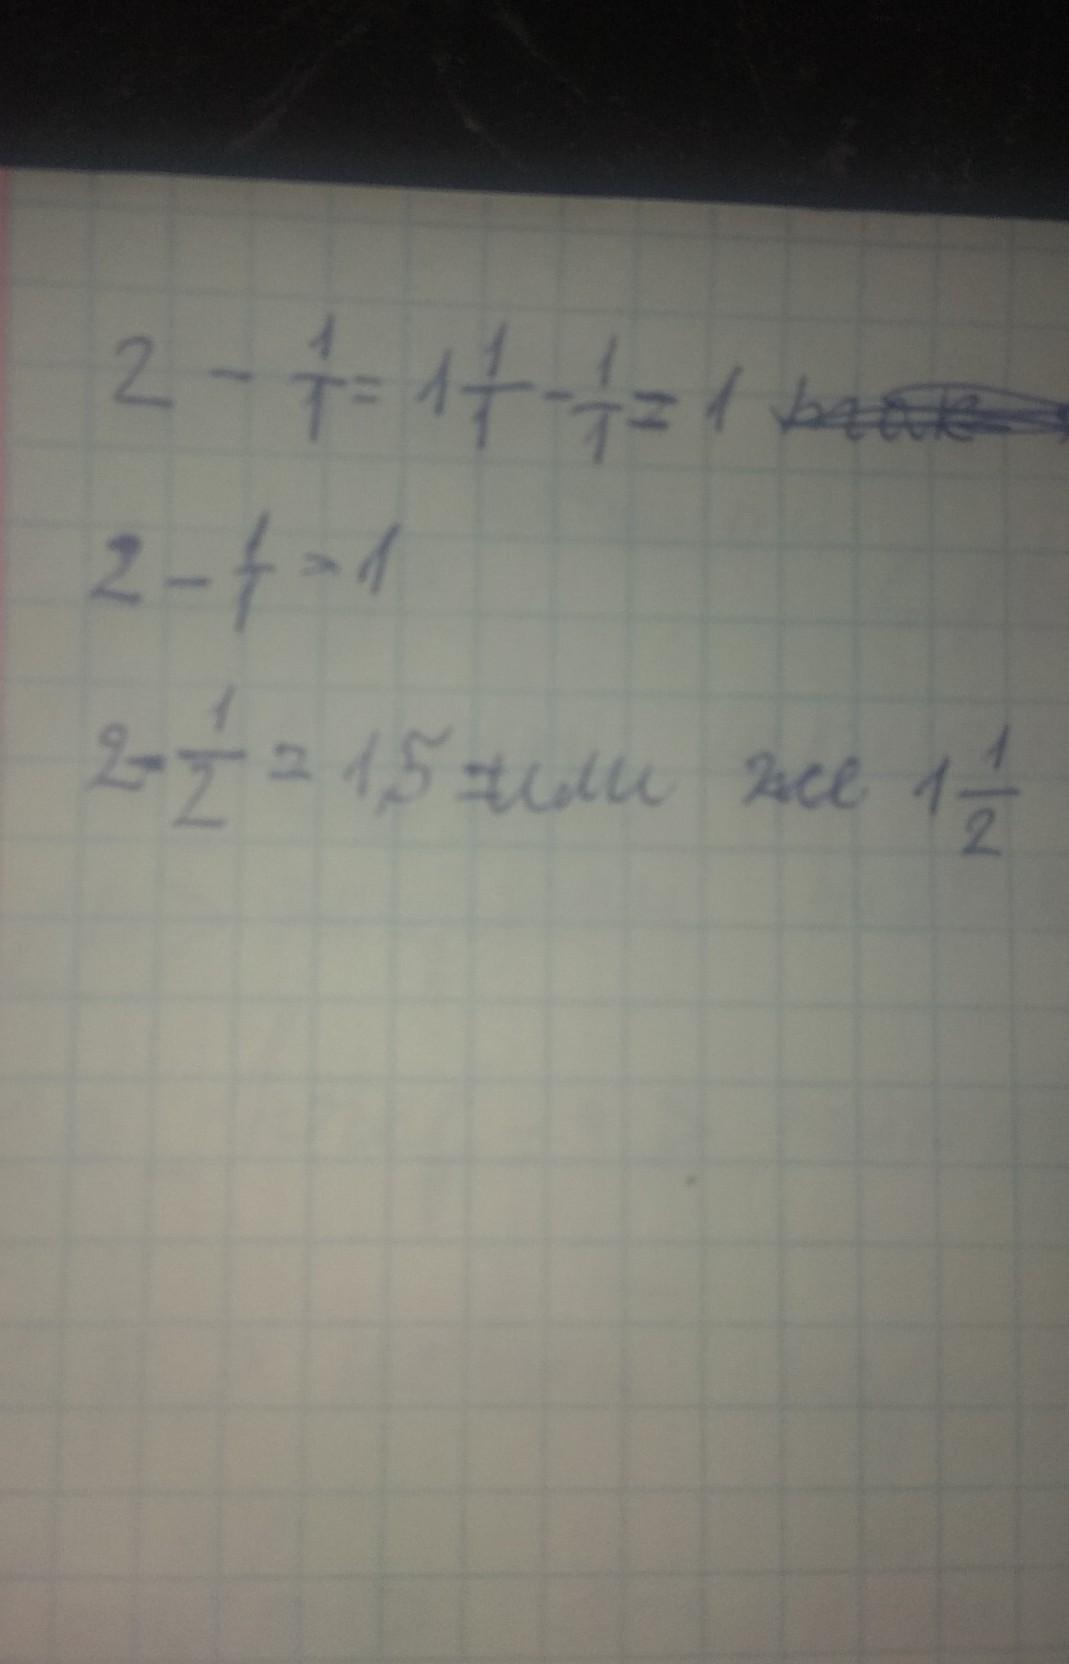 2 - 1/1 = 1 1/1 - 1/1 = 1
2 - 1/1 = 1
2 - 1/2 = 1,5 или же 1 1/2